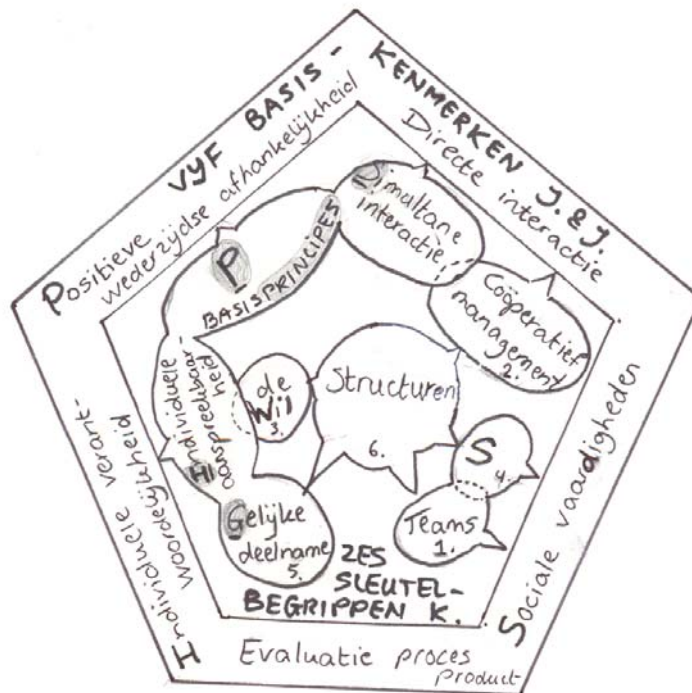 VYF BASIS -
KENMERKEN J. & J.
Positieve
wederzijdse afhankelijkheid
Directe interactie
Sociale vaardigheden
Evaluatie proces
product
Individuele verant-
woordelijkheid
P
BASISPRINCIPES
Simultane
interactie
Coöperatief
management
2.
Individuele
aanspreekbaar-
heid
de
Wil
3.
Structuren
6.
S
4.
Teams
1.
Gelijke
deelname
5.
ZES
SLEUTEL-
BEGRIPPEN K.